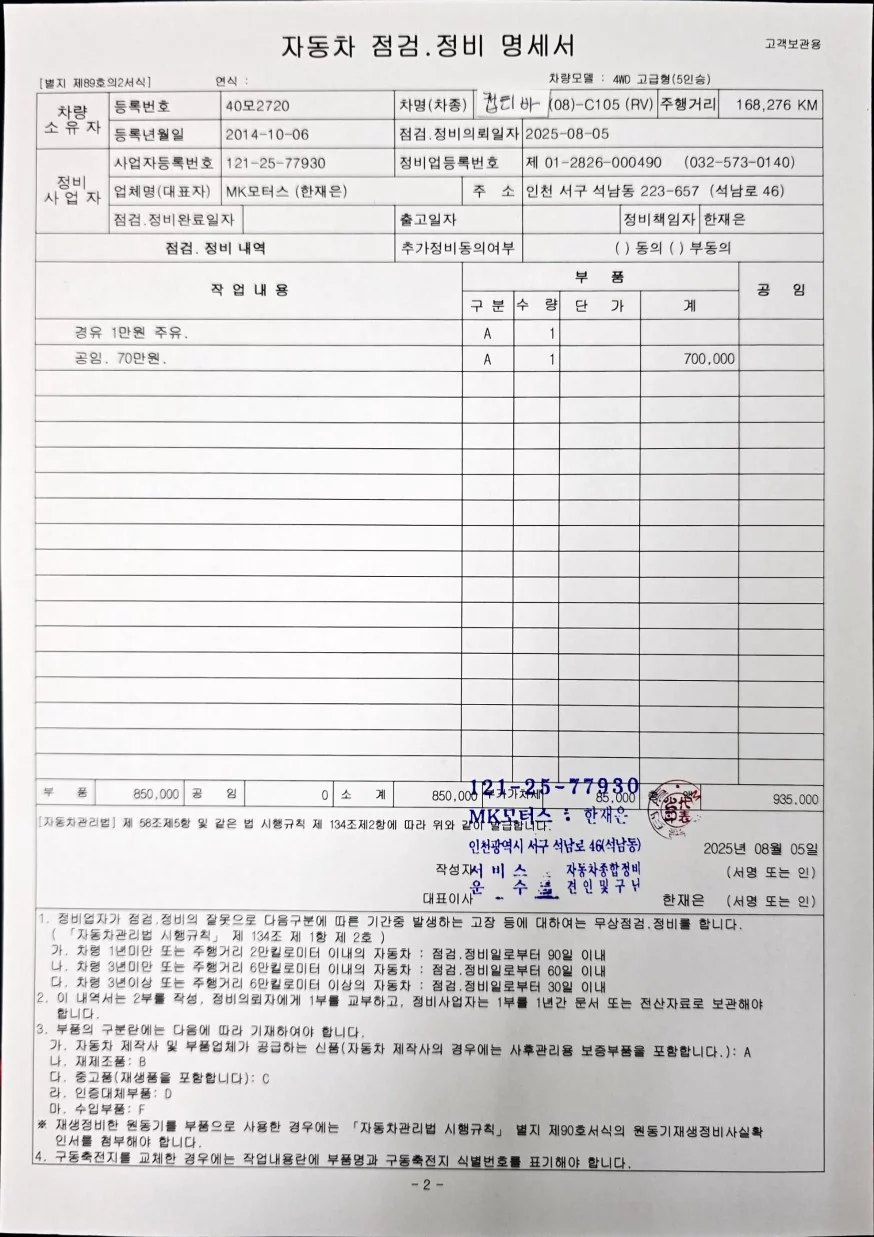 자동차 점검.정비 명세서
고객보관용
[별지 제89호의2서식] 연식 : 차량모델 : 4WD 고급형(5인승)
차량 소유자 등록번호 40모2720 차명(차종) 캡티바 (08)-C105 (RV) 주행거리 168,276 KM
등록년월일 2014-10-06 점검.정비의뢰일자 2025-08-05
정비 사업자 사업자등록번호 121-25-77930 정비업등록번호 제 01-2826-000490 (032-573-0140)
업체명(대표자) MK모터스 (한재은) 주 소 인천 서구 석남동 223-657 (석남로 46)
점검.정비완료일자 출고일자 정비책임자 한재은
점검. 정비 내역 추가정비동의여부 ( ) 동의 ( ) 부동의
작 업 내 용 부 품 공 임
구 분 수 량 단 가 계
경유 1만원 주유. A 1
공임. 70만원. A 1 700,000
부 품 850,000 공 임 0 소 계 850,000 부가가치세 85,000 총 액 935,000
121-25-77930
MK모터스 : 한재은
인천광역시 서구 석남로 46(석남동)
서 비 스 자동차종합정비
운 수 견 인 및 구 난
[자동차관리법] 제 58조제5항 및 같은 법 시행규칙 제 134조제2항에 따라 위와 같이 발급합니다.
2025년 08월 05일
작성자 (서명 또는 인)
대표이사 한재은 (서명 또는 인)
1. 정비업자가 점검.정비의 잘못으로 다음구분에 따른 기간중 발생하는 고장 등에 대하여는 무상점검.정비를 합니다.
( 「자동차관리법 시행규칙」 제 134조 제 1항 제 2호 )
가. 차령 1년미만 또는 주행거리 2만킬로미터 이내의 자동차 : 점검.정비일로부터 90일 이내
나. 차령 3년미만 또는 주행거리 6만킬로미터 이내의 자동차 : 점검.정비일로부터 60일 이내
다. 차령 3년이상 또는 주행거리 6만킬로미터 이상의 자동차 : 점검.정비일로부터 30일 이내
2. 이 내역서는 2부를 작성, 정비의뢰자에게 1부를 교부하고, 정비사업자는 1부를 1년간 문서 또는 전산자료로 보관해야
합니다.
3. 부품의 구분란에는 다음에 따라 기재하여야 합니다.
가. 자동차 제작사 및 부품업체가 공급하는 신품(자동차 제작사의 경우에는 사후관리용 보증부품을 포함합니다.): A
나. 재제조품: B
다. 중고품(재생품을 포함합니다): C
라. 인증대체부품: D
마. 수입부품: F
※ 재생정비한 원동기를 부품으로 사용한 경우에는 「자동차관리법 시행규칙」 별지 제90호서식의 원동기재생정비사실확
인서를 첨부해야 합니다.
4. 구동축전지를 교체한 경우에는 작업내용란에 부품명과 구동축전지 식별번호를 표기해야 합니다.
- 2 -